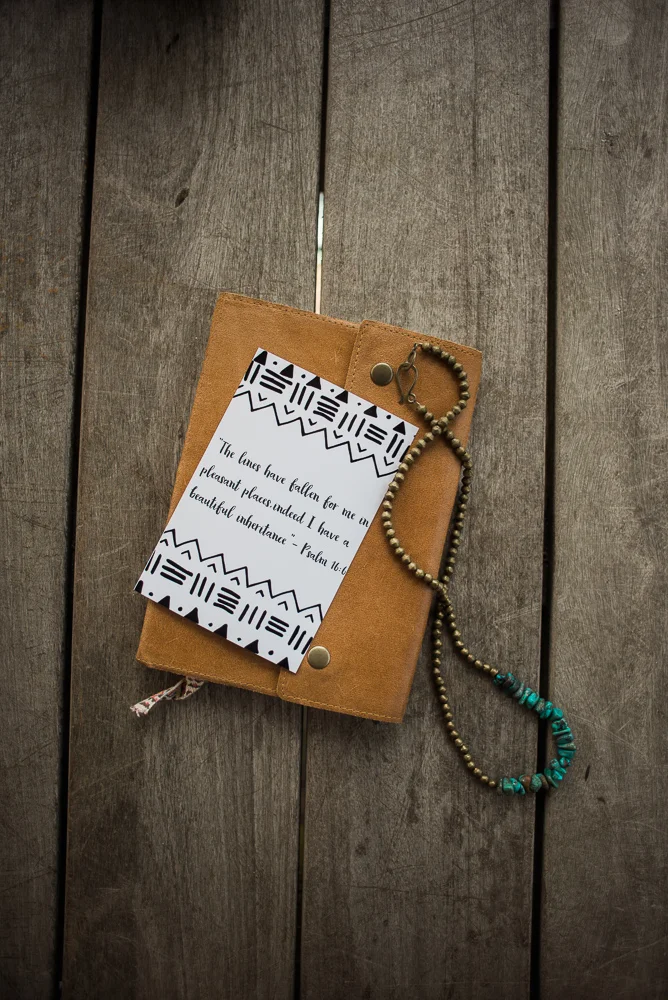 "The lines have fallen for me in
pleasant places,indeed I have a
beautiful inheritance"- Psalm 16:6